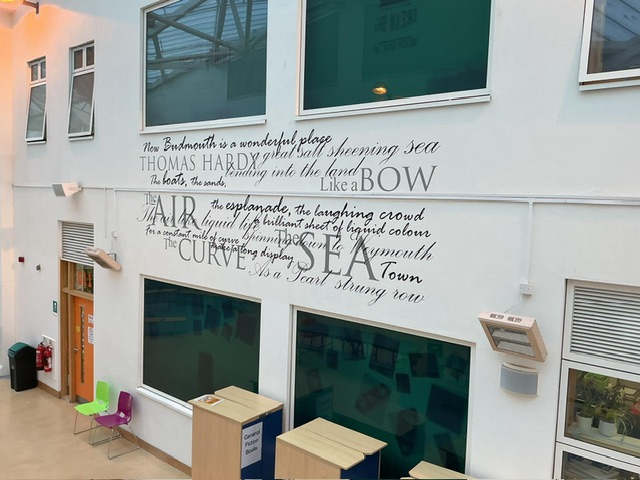 Now Budmouth is a wonderful place
THOMAS HARDY great salt sheening sea
bending into the land
The boats, the sands,
Like a BOW
The AIR the esplanade, the laughing crowd
the liquid life brilliant sheet of liquid colour
For a constant mile of curve
The SEA
The CURVE make a long display
Town
As a Pearl strung row
General
Fiction
Books